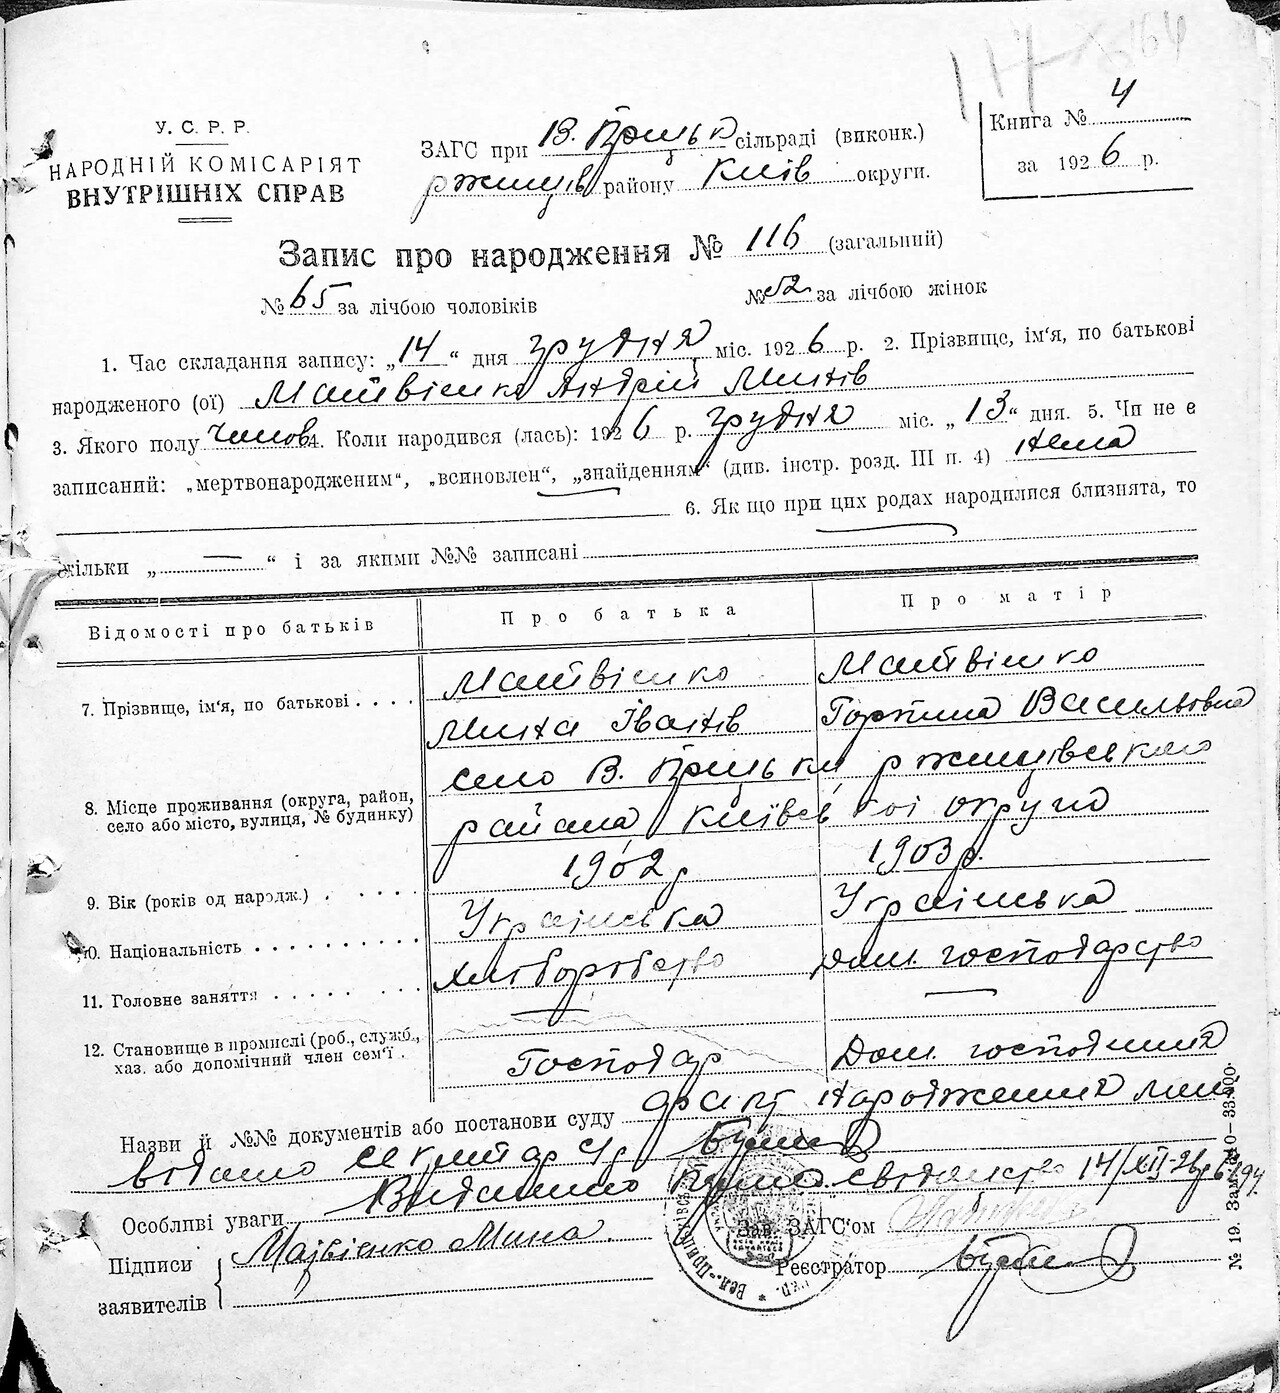 117 164
У. С. Р. Р.
НАРОДНІЙ КОМІСАРІЯТ
ВНУТРІШНІХ СПРАВ
ЗАГС при В. Прицьк сільраді (виконк.)
ржищів району Київ округи.
Книга № 4
за 1926 р.
Запис про народження № 116 (загальний)
№ 65 за лічбою чоловіків
№ 52 за лічбою жінок
1. Час складання запису: „14“ дня грудня міс. 1926 р. 2. Прізвище, ім‘я, по батькові
народженого (ої) Матвієнко Андрій Минів
3. Якого полу чолов 4. Коли народився (лась): 1926 р. грудня міс. „13“ дня. 5. Чи не є
записаний: „мертвонародженим“, „всиновлен“, „знайденням“ (див. інстр. розд. III п. 4) нема
6. Як що при цих родах народилися близнята, то
скільки „ — “ і за якими №№ записані
Відомості про батьків
Про батька
Про матір
7. Прізвище, ім‘я, по батькові . . . .
Матвієнко
Мина Іванів
Матвієнко
Горпина Васильовна
8. Місце проживання (округа, район,
село або місто, вулиця, № будинку)
село В. Прицьки ржищівського
района Київської округи
9. Вік (років од народж.) . . . . .
1902 р
1903 р.
10. Національність . . . . . . . . . .
Українська
Українська
11. Головне заняття . . . . . . . .
Хліборобство
Дом. господарство
12. Становище в промислі (роб., служб.,
хаз. або допомічний член сем‘ї .
Господар
Дом. господиня
Назви й №№ документів або постанови суду факт народження мині
відомо секретар с/р
Особлпві уваги Видано свідоцтво 14/XII-26р
Підписи
заявителів
Маівієнко Мина.
Зав. ЗАГС‘ом
Реєстратор
№ 19. Зам.